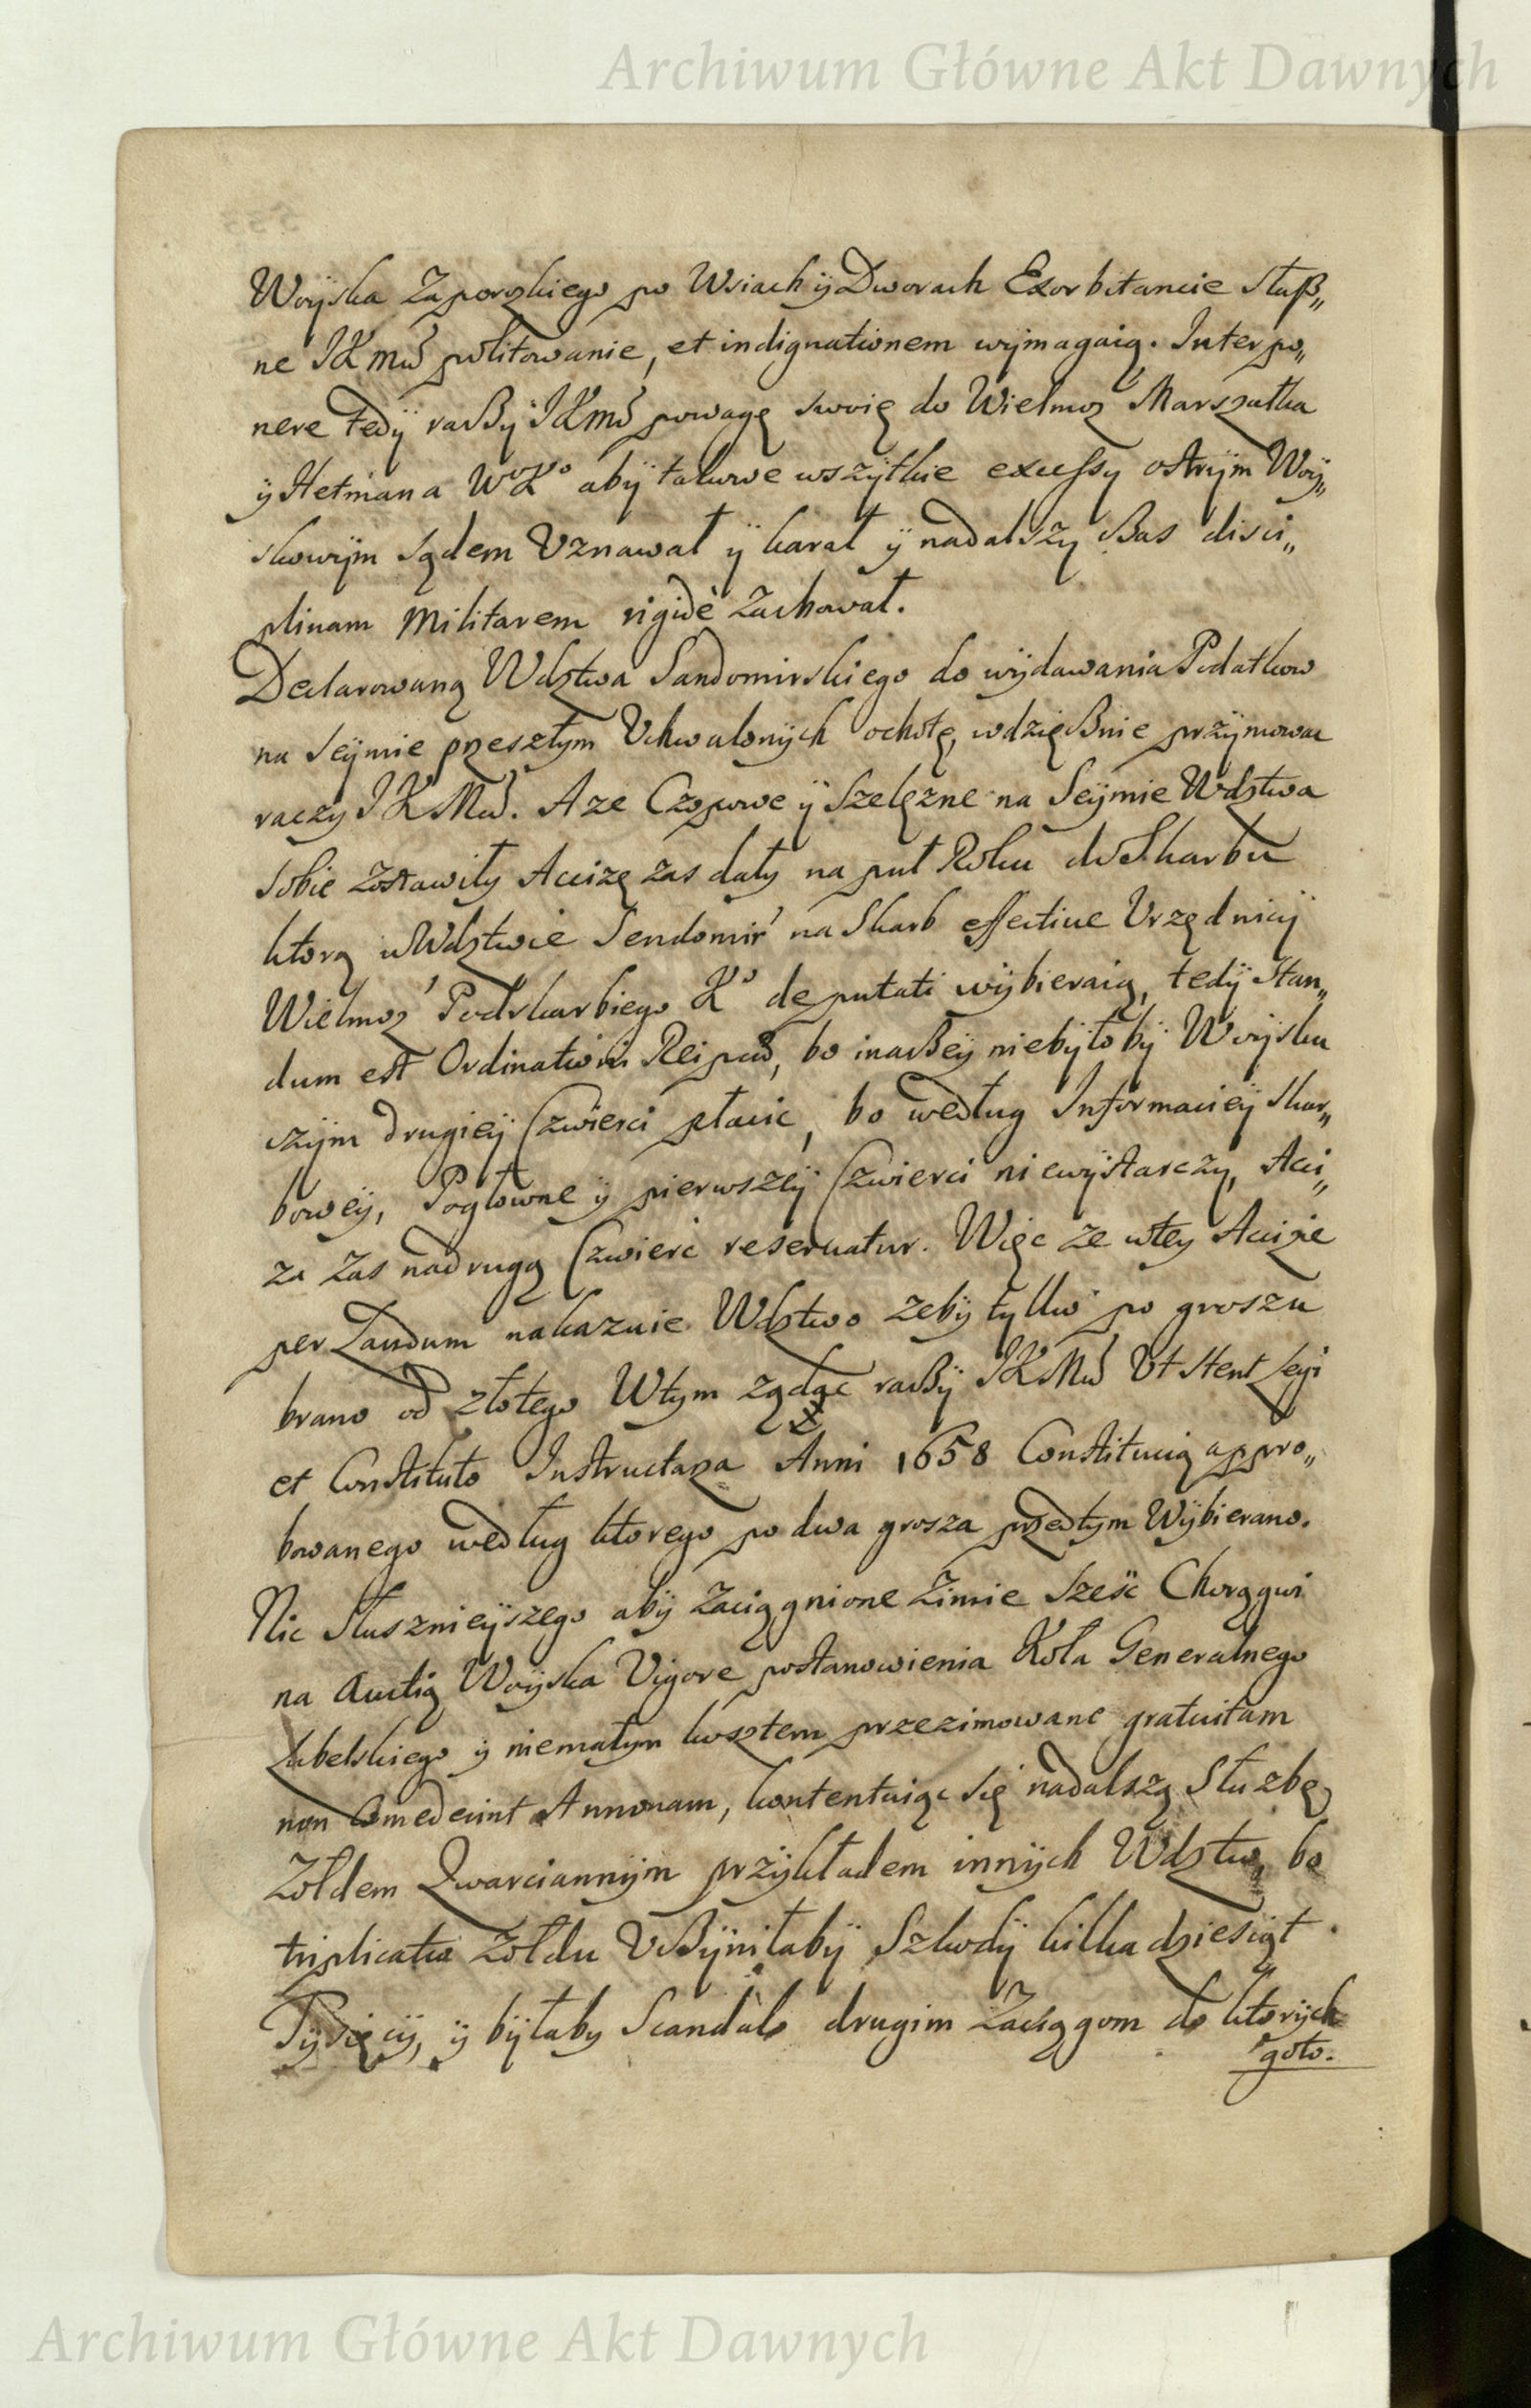 Archiwum Główne Akt Dawnych
Woÿska Zaporozkiego po Wsiach ÿ Dworach Exorbitancie słuß„
ne JKmć politowanie, et indignationem wÿmagaią. Interpo„
nere tedÿ raßÿ JKmć powagę swoię do Wielmoz Marszałka
ÿ Hetmana WoKo abÿ takowe wszÿtkie excessy ostrÿm Woÿ„
skowÿm sądem Uznawał ÿ karał ÿ nadalszy ßas disci„
plinam Militarem rigidè Zachował.
Declarowaną Wdztwa Sandomirskiego do wÿdawania Podatkow
na Seÿmie przeszłym Uchwalonÿch ochotę, wdzięßnie przÿmowac
raczy JKMć. A ze Czopowe ÿ Szelęzne na Seÿmie Wdztwa
sobie zostawiły Accizę zas dały na puł Roku do Skarbu
ktorą w Wdztwie Sendomir na Skarb effective Urzędnicÿ
Wielmoz Podskarbiego Ko deputati wÿbieraią, tedÿ stan„
dum est Ordinationi Reipub, bo inaßeÿ niebÿłobÿ Woÿsku
czÿm drugieÿ Czwierci płacic, bo według Informacieÿ Skar„
boweÿ, Pogłowne ÿ pierwszeÿ Czwierci niewÿstarczy, Acci„
za zas nadrugą Czwierc reservatur. Więc ze wtey Accizie
per Laudum nakazuie Wdztwo zebÿ tylko po groszu
brano od złotego Wtym ządac raßÿ JKMć Ut stent legi
et Constituto Instructarza Anni 1658 Constitucią appro„
bowanego według ktorego po dwa grosza przedtym Wÿbierano.
Nic słusznieÿszego abÿ Zaciągnione Zimie sześc Chorągwi
na Auctią Woÿska Vigore postanowienia Koła Generalnego
Lubelskiego ÿ niemałym kosztem przezimowane gratuitam
non Comederint Annonam, kontentuiąc się nadalszą słuzbę
Zołdem Qwarciannÿm przÿkładem innÿch Wdztw, bo
triplicatio zołdu Ußÿniłabÿ Szkodÿ kilkadziesiąt
Tÿsięcÿ, ÿ bÿłaby Scandalo drugim Zaciągom do ktorÿch
goto.
Archiwum Główne Akt Dawnych